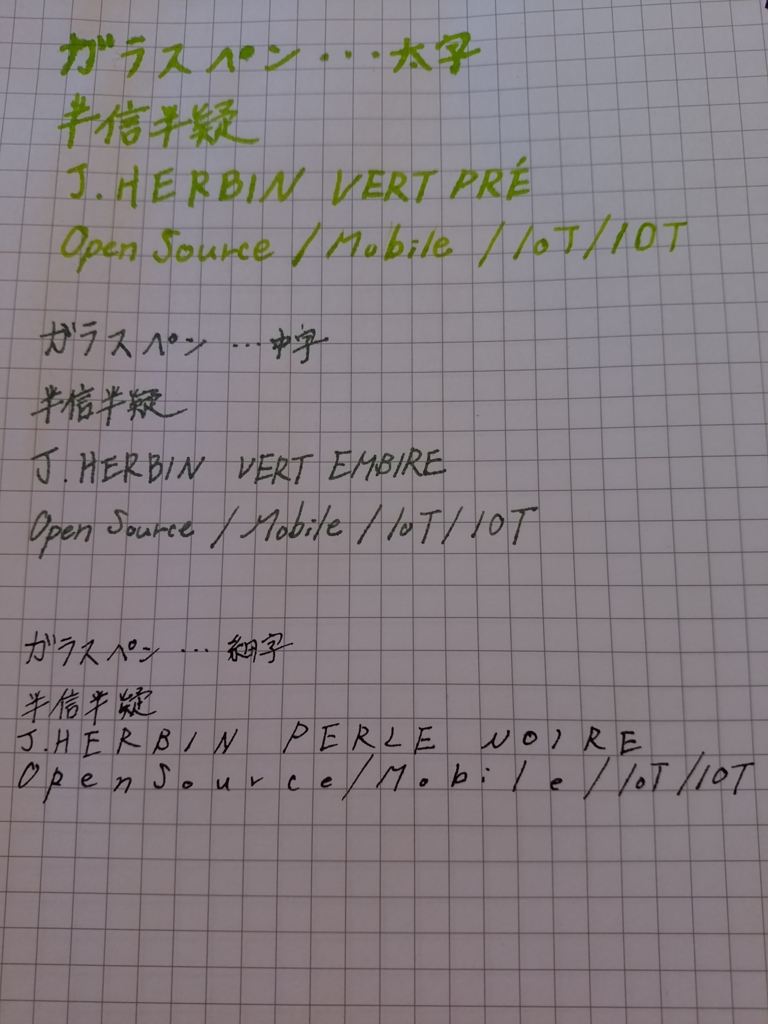 ガラスペン ･･･太字
半信半疑
J.HERBIN VERT PRÉ
Open Source /Mobile /IoT/IOT
ガラスペン ･･･中字
半信半疑
J.HERBIN VERT EMBIRE
Open Source /Mobile/IoT/IOT
ガラスペン ･･･ 細字
半信半疑
J.HERBIN PERLE NOIRE
Open Source/Mobile/IoT/IOT